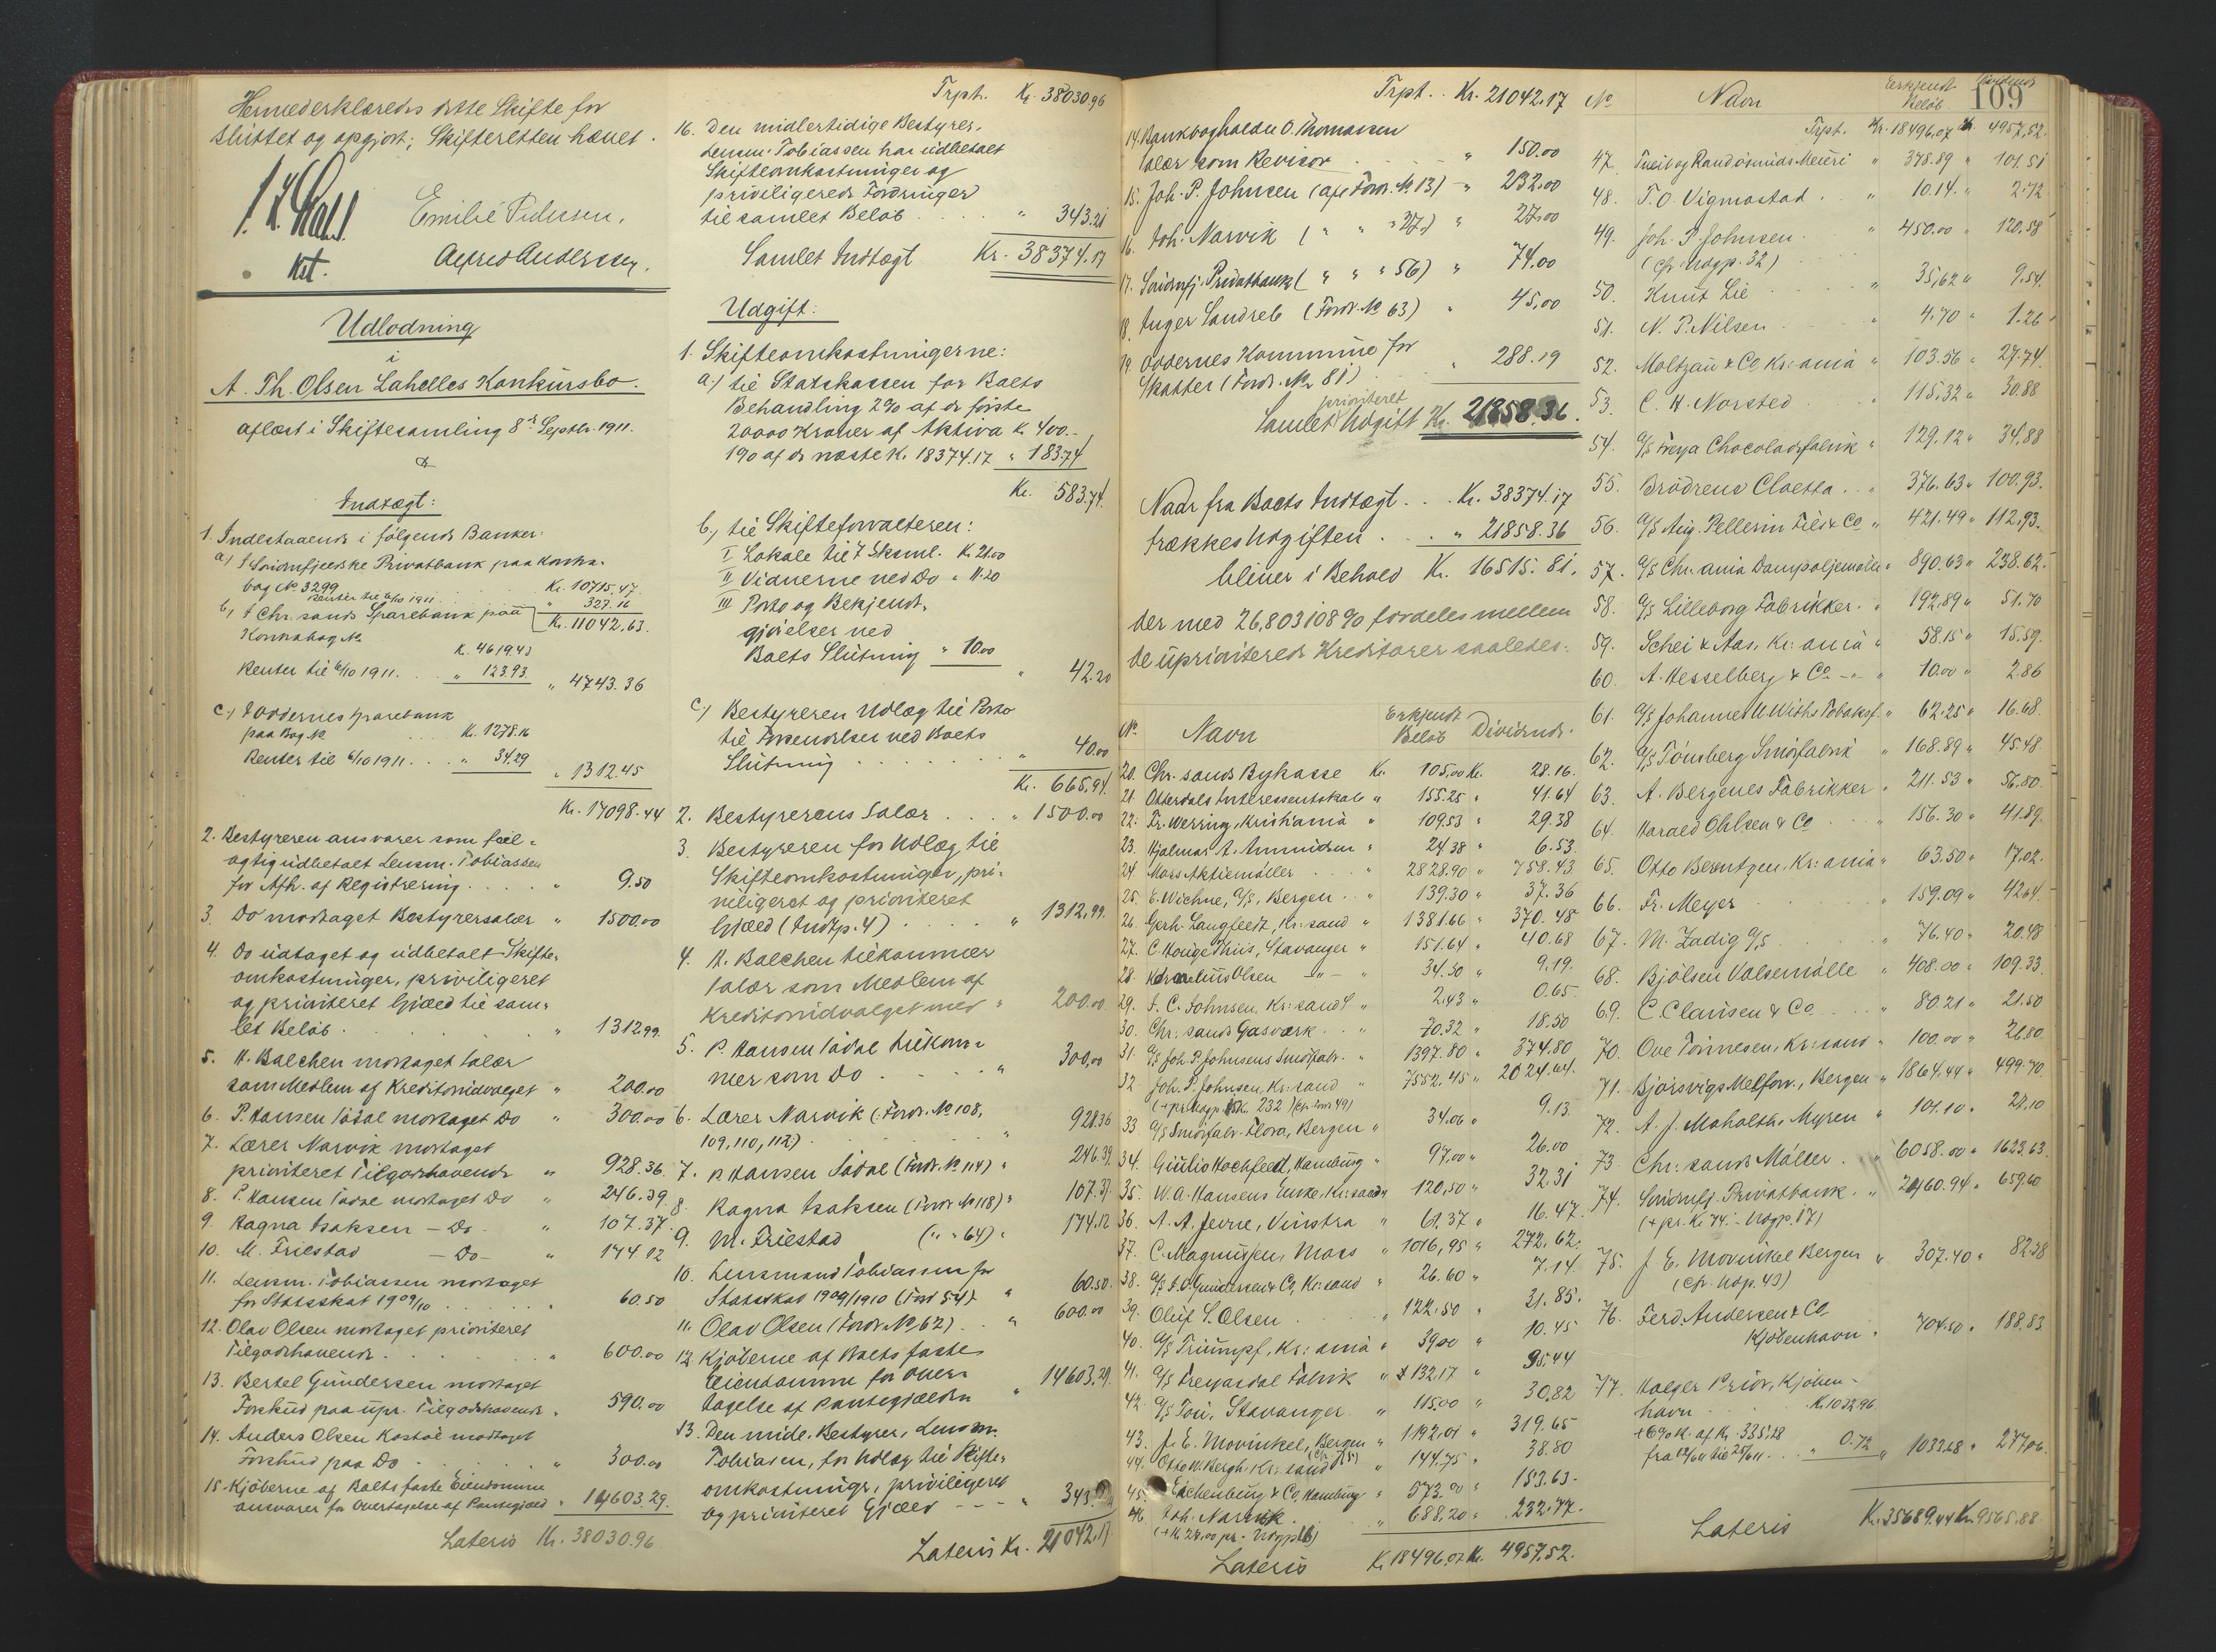 Hermed erklæredes dette Skifte for
sluttet og opgjort; Skifteretten hævet.
Emilie Pedersen.
Alfred Andersen.
kst.
Udlodning
i
A. Th. Olsen Lahelles Konkursbo.
aflæst i Skiftesamling 8de Septbr. 1911.
Indtægt:
1. Indestaaende i følgende Banker:
a) I Søndenfjeldske Privatbank paa Kontra-
bog No 3299 . . . Kr. 10715.47.
Renter til 6/10 1911 . . " 327.16
Kr. 11042.63.
b) I Chr.sands Sparebank paa
Kontrabog No
K. 4619.43
Renter til 6/10 1911 . . " 123.93. " 4743.36
c) I Oddernes Sparebank
paa Bog No . . . Kr. 1278.16
Renter til 6/10 1911 . . . " 34.29
" 1312.45
Kr. 17098.44
2. Bestyreren ansvarer som feil-
agtig udbetalt Lensm. Tobiassen
for Afh. af Registrering . . . . " 9.50
3. Do modtaget Bestyrersalær " 1500.00
4. Do udtaget og udbetalt Skifte-
omkostninger, priviligeret
og prioriteret Gjæld til sam-
let Beløb . . . . " 1312.99.
5. H. Balchen modtaget Salær
som Medlem af Kreditorudvalget " 200.00
6. P. Hansen Sødal modtaget Do " 300.00
7. Lærer Narvik modtaget
prioriteret Tilgodehavende " 928.36.
8. P. Hansen Sødal modtaget Do " 246.39.
9. Ragna Isaksen - Do - " 107.37.
10. M. Friestad - Do - " 174.12
11. Lensm. Tobiassen modtaget
for Statsskat 1909/10 . . . . " 60.50
12. Olav Olsen modtaget prioriteret
Tilgodehavende . . . . " 600.00
13. Bertel Gundersen modtaget
Forskud paa upr. Tilgodehavende " 590.00
14. Anders Olsen Kostøl modtaget
Forskud paa Do . . . . " 300.00
15. Kjøberne af Boets faste Eiendomme
ansvarer for Overtagelse af Pantegjæld " 14603.29.
Lateris Kr. 38030.96
Trpt. Kr. 38030.96
16. Den midlertidige Bestyrer,
Lensm. Tobiassen har udbetalt
Skifteomkostninger og
priviligerede Fordringer
til samlet Beløb . . . . " 343.21
Samlet Indtægt Kr. 38374.17
Udgift:
1. Skifteomkostningerne:
a) til Statskassen for Boets
Behandling 2% af de første
20000 Kroner af Aktiva K. 400.-
1% af de næste K. 18374.17 " 183.74
Kr. 583.74.
b) til Skifteforvalteren:
I Lokale til 7 Sksml. K. 21.00
II Vidnerne ved Do " 11.20
III Porto og Bekjendt-
gjørelser ved
Boets Slutning " 10.00
" 42.20
c) Bestyreren Udlæg til Porto
til Forsendelser ved Boets
Slutning . . . . " 40.00
Kr. 665.94.
2. Bestyrerens Salær . . . . " 1500.00
3. Bestyreren for Udlæg til
Skifteomkostninger, pri-
viligeret og prioriteret
Gjæld (Indtp. 4) . . . . " 1312.99.
4. H. Balchen tilkommer
Salær som Medlem af
Kreditorudvalget med " 200.00
5. P. Hansen Sødal tilkom-
mer som Do . . . . " 300.00
6. Lærer Narvik (Fordr. No 108,
109, 110, 112) . . . . " 928.36
7. P. Hansen Sødal (Fordr. No 114) " 246.39
8. Ragna Isaksen (Fordr. No 118) " 107.37.
9. M. Friestad (" " 64) " 174.12
10. Lensmand Tobiassen for
Statsskat 1909/1910 (Ford 54) " 60.50.
11. Olav Olsen (Fordr. No 62) . . " 600.00
12. Kjøberne af Boets faste
Eiendomme for Over-
tagelse af Pantegjælden " 14603.29.
13. Den midl. Bestyrer, Lensm.
Tobiassen, for Udlæg til Skifte-
omkostninger, priviligeret
og prioriteret Gjæld - - - " 343.
Lateris Kr. 21042.17
109
Trpt. . Kr. 21042.17
14. Bankbogholder O. Thomassen
Salær som Revisor . . . . " 150.00
15. Joh. P. Johnsen (af Fordr. No 13) - " 232.00
16. Joh. Narvik ( " " " 27) " 27.00
17. Søndenfj. Privatbank ( " " " 56) " 74.00
18. Inger Landreb (Fordr. No 63) " 45.00
19. Oddernes Kommune for
Skatter (Fordr. No 81) . . " 288.19
prioriteret
Samlet Udgift Kr. 21858.36.
Naar fra Boets Indtægt . . . Kr. 38374.17
trækkes Udgiften . . . " 21858.36
bliver i Behold Kr. 16515.81.
der med 26,803108 % fordeles mellem
de uprioriterede Kreditorer saaledes:
No. Navn Erkjendt Beløb Dividende.
20. Chr.sands Bykasse Kr. 105.00 Kr. 28.16.
21. Otterdals Interessentskab " 155.25 " 41.64
22. Fr. Werring, Kristiania " 109.53 " 29.38
23. Hjalmar A. Amundsen " 24.38 " 6.53.
24. Moss Aktiemøller . . " 2828.90 " 758.43
25. E. Wichne, A/S, Bergen . . " 139.30 " 37.36
26. Gerh. Langfeldt, Kr.sand " 1381.66 " 370.48
27. C. Houge Thiis, Stavanger " 151.64 " 40.68
28. Olsen - " - " 34.30 " 9.19.
29. J. C. Johnsen, Kr.sand " 2.43 " 0.65.
30. Chr.sands Gasværk . . " 70.32 " 18.50
31. A/S Joh. P. Johnsens Smørfabr. . " 1397.80 " 374.80
32. Joh. P. Johnsen, Kr.sand " 7552.45 " 2024.64.
(+ pr. Udgp. 15 K. 232) (cfr. Fordr 49)
33. A/S Smørfabr. Flora, Bergen " 34.06 " 9.13.
34. Giulio Hochfeldt, Hamburg " 97.00 " 26.00
35. W. A. Hansens Enke, Kr.sand " 120.50 " 32.31
36. A. A. Jevne, Vinstra " 61.37 " 16.47.
37. C. Magnussen, Moss " 1016.95 " 272.62.
38. A/S J. O. Gundersen & Co, Kr.sand " 26.60 " 7.14.
39. Oluf S. Olsen . . . " 122.50 " 31.85.
40. A/S Triumpf, Kr.ania " 39.00 " 10.45
41. A/S Freyasdal Fabrik " 132.17 " 35.44
42. A/S Tou, Stavanger . " 115.00 " 30.82
43. J. E. Mowinkel, Bergen " 1192.01 " 319.65
44. Otto W. Bergh, Kr.sand " 144.75 " 38.80
45. Eichenburg & Co, Hamburg " 573.00 " 153.63.
46. Joh. Narvik . . " 688.20 " 232.77.
(+ K. 27.00 pr. Udgp 16)
Lateris Kr. 18496.07 Kr. 4957.52.
No Navn Erkjendt Beløb Dividende
Trpt. Kr. 18496.07 Kr. 4957.52.
47. Tveit og Randøsunds Meieri " 378.89 " 101.51
48. T. O. Vigmostad . . " 10.14. " 2.72
49. Joh. P. Johnsen . . " 450.00 " 120.58
(cfr. Udgp. 32)
50. Knut Lie . . . " 35.62 " 9.54.
51. N. P. Nilsen . . . " 4.70 " 1.26
52. Moltzau & Co Kr.ania " 103.56 " 27.74.
53. C. H. Norsted . . . " 115.32 " 30.88
54. A/S Freya Chocoladefabrik " 129.12 " 34.88
55. Brødrene Cloetta . . " 376.63 " 100.93.
56. A/S Aug. Pellerin Fils & Co " 421.49 " 112.93.
57. A/S Chr.ania Dampoljemølle " 890.63 " 238.62.
58. A/S Lilleborg Fabrikker . " 192.89 " 51.70
59. Schei & Aas, Kr.ania " 58.15 " 15.59.
60. A. Hesselberg & Co - " - " 10.00 " 2.86
61. A/S Johannes H. Withs Tobaksf. " 62.25 " 16.68.
62. A/S Tønsberg Smørfabrik " 168.89 " 45.48.
63. A. Bergenes Fabrikker " 211.53 " 56.80.
64. Harald Ohlsen & Co . . " 156.30 " 41.89.
65. Otto Berentzen, Kr.ania " 63.50 " 17.02.
66. Fr. Meyer . . " 159.09 " 42.64.
67. M. Zadig A/S . . " 76.40 " 20.48
68. Bjølsen Valsemølle " 408.00 " 109.33.
69. C. Clausen & Co . . " 80.21 " 21.50
70. Ove Tønnesen, Kr.sand " 100.00 " 26.80
71. Bjørsvigs Melforr., Bergen " 1864.44 " 499.70.
72. A. J. Moholth, Myren " 101.10 " 27.10
73. Chr.sands Møller . . " 6058.00 " 1623.63.
74. Søndenfj. Privatbank . " 2460.94 " 659.60
(+ pr. Kr 74. - Udgp. 17)
75. J. E. Mowinkel Bergen " 307.40 " 82.38
(cfr. Udp. 43)
76. Ferd. Andersen & Co
Kjøbenhavn . " 704.50 " 188.83
77. Holger Prior, Kjøben-
havn . . . K. 1032.96
+ 6% R. af Kr. 335.28
fra 12/6 11 til 25/6 11 . . " 0.72 " 1033.68 " 277.06.
Lateris Kr. 35689.44 Kr. 9565.88